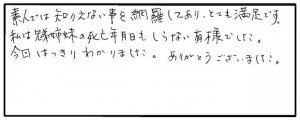 素人では知りえない事を網羅してあり、とても満足です。
私は兄弟姉妹の死亡年月日もしらない有様でした。
今回はっきりわかりました。ありがとうございました。